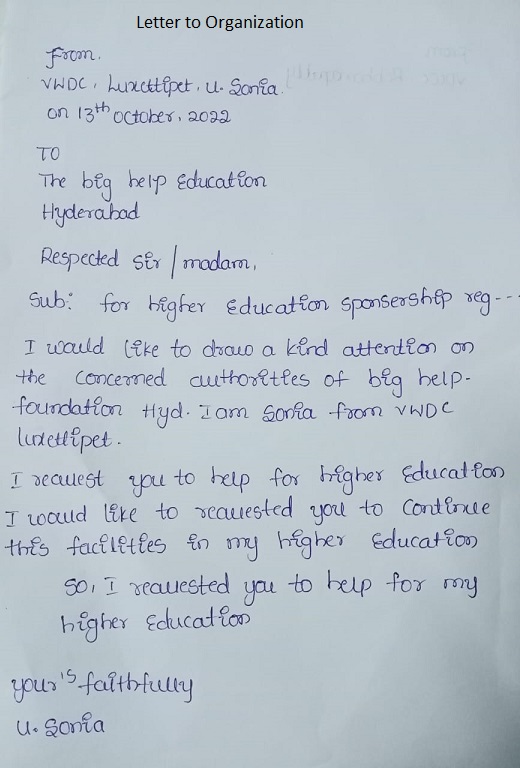 Letter to Organization
From.
VWDC, Luxettipet, U. Sonia.
on 13th October, 2022
TO
The big help Education
Hyderabad
Respected sir / madam,
Sub: for higher Education sponsership reg---
I would like to draw a kind attention on
the concerned authoritties of big help-
foundation Hyd. I am Sonia from VWDC
luxettipet.
I request you to help for higher Education
I would like to requested you to continue
this facilitties in my higher Education
SO, I requested you to help for my
higher Education
your's faithfully
U. Sonia